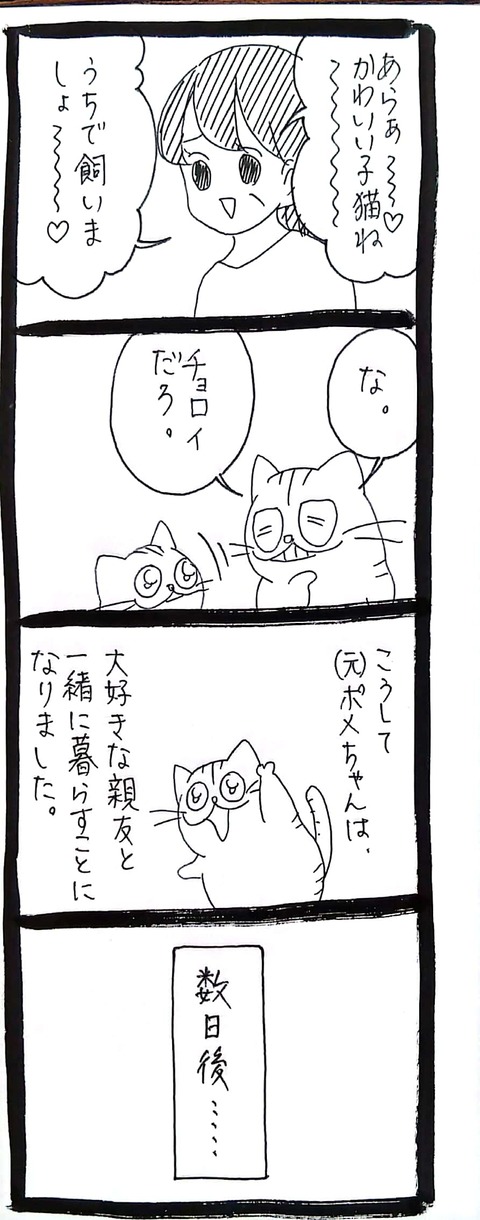 あらぁ〜〜♡
かわいい子猫ね
〜〜〜〜
うちで飼いま
しょ〜〜〜〜♡
な。
チョロイ
だろ。
こうして
(元)ポメちゃんは、
大好きな親友と
一緒に暮らすことに
なりました。
数日後……